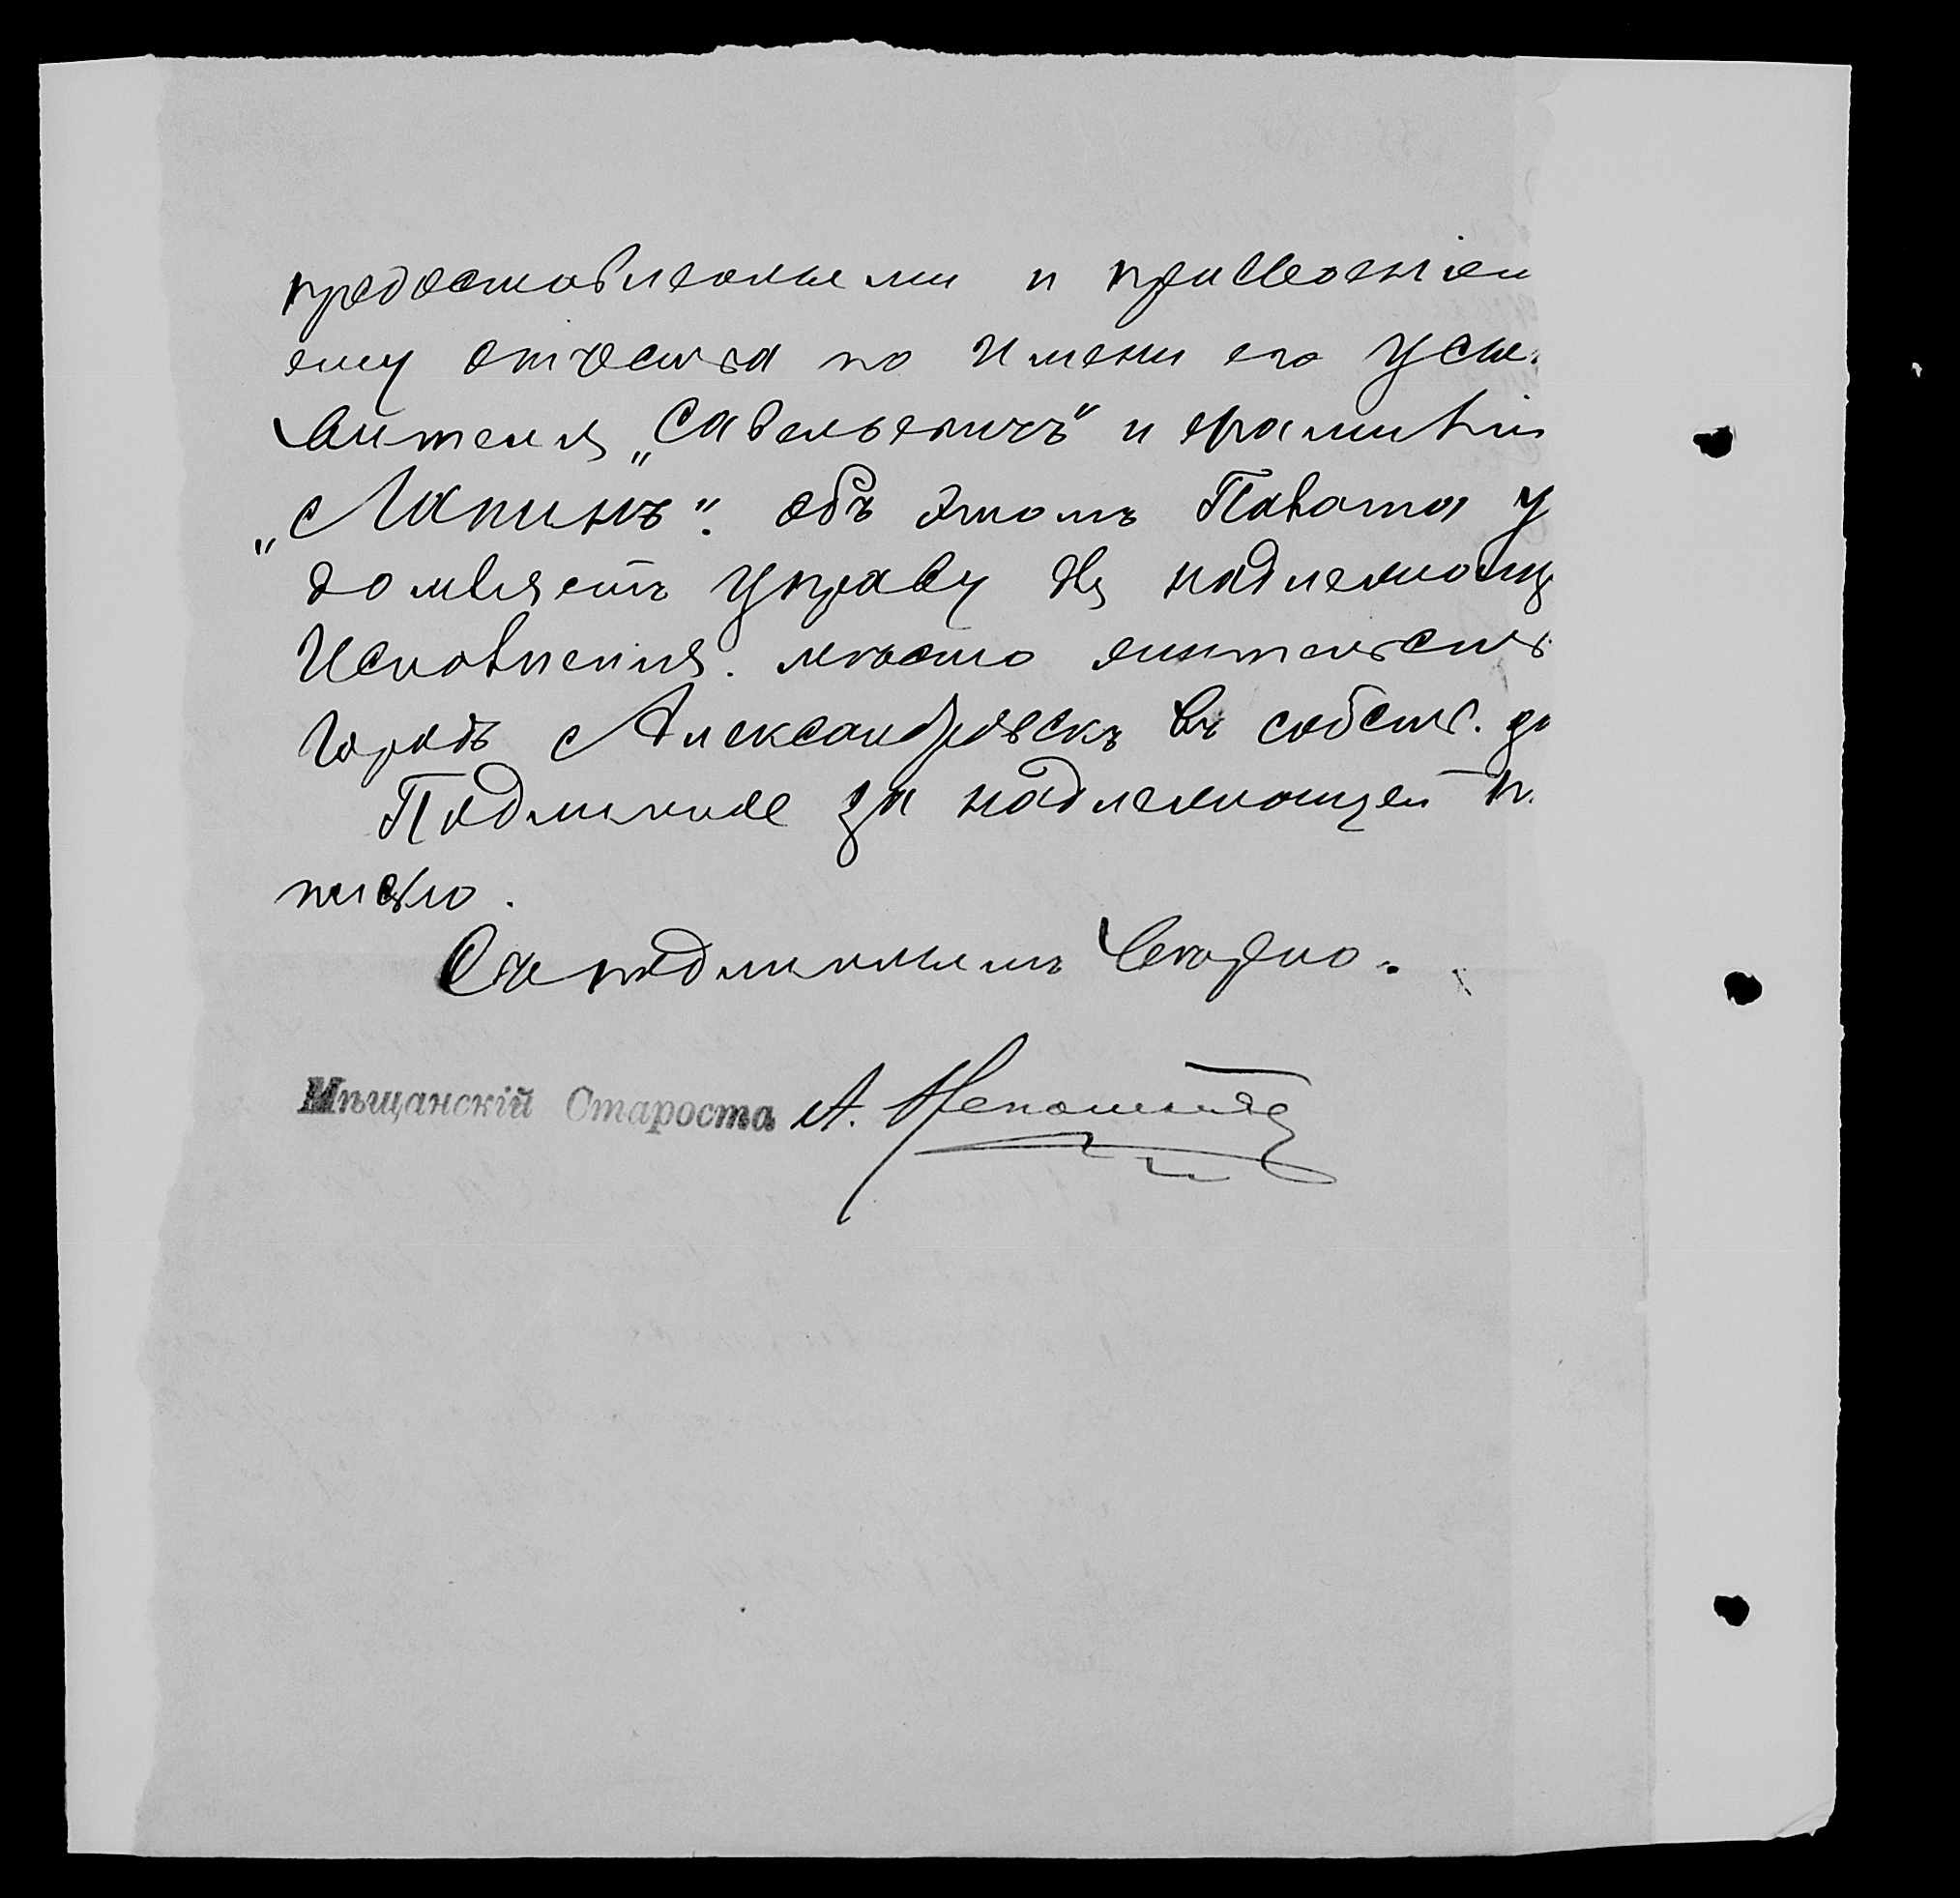 предоставленными и присвоеніем
ему отчества по имени его усы-
вителя „Савельевичъ" и фамиліи
„Лапинъ". Объ этомъ Палата у
домляетъ управу для надлежащ
Исполненія. мѣсто жительств
Городъ Александровскъ въ собств. до
Подлинное за надлежащей п.
писью.
Съ подлиннымъ вѣрно.
Мѣщанскій Староста А.